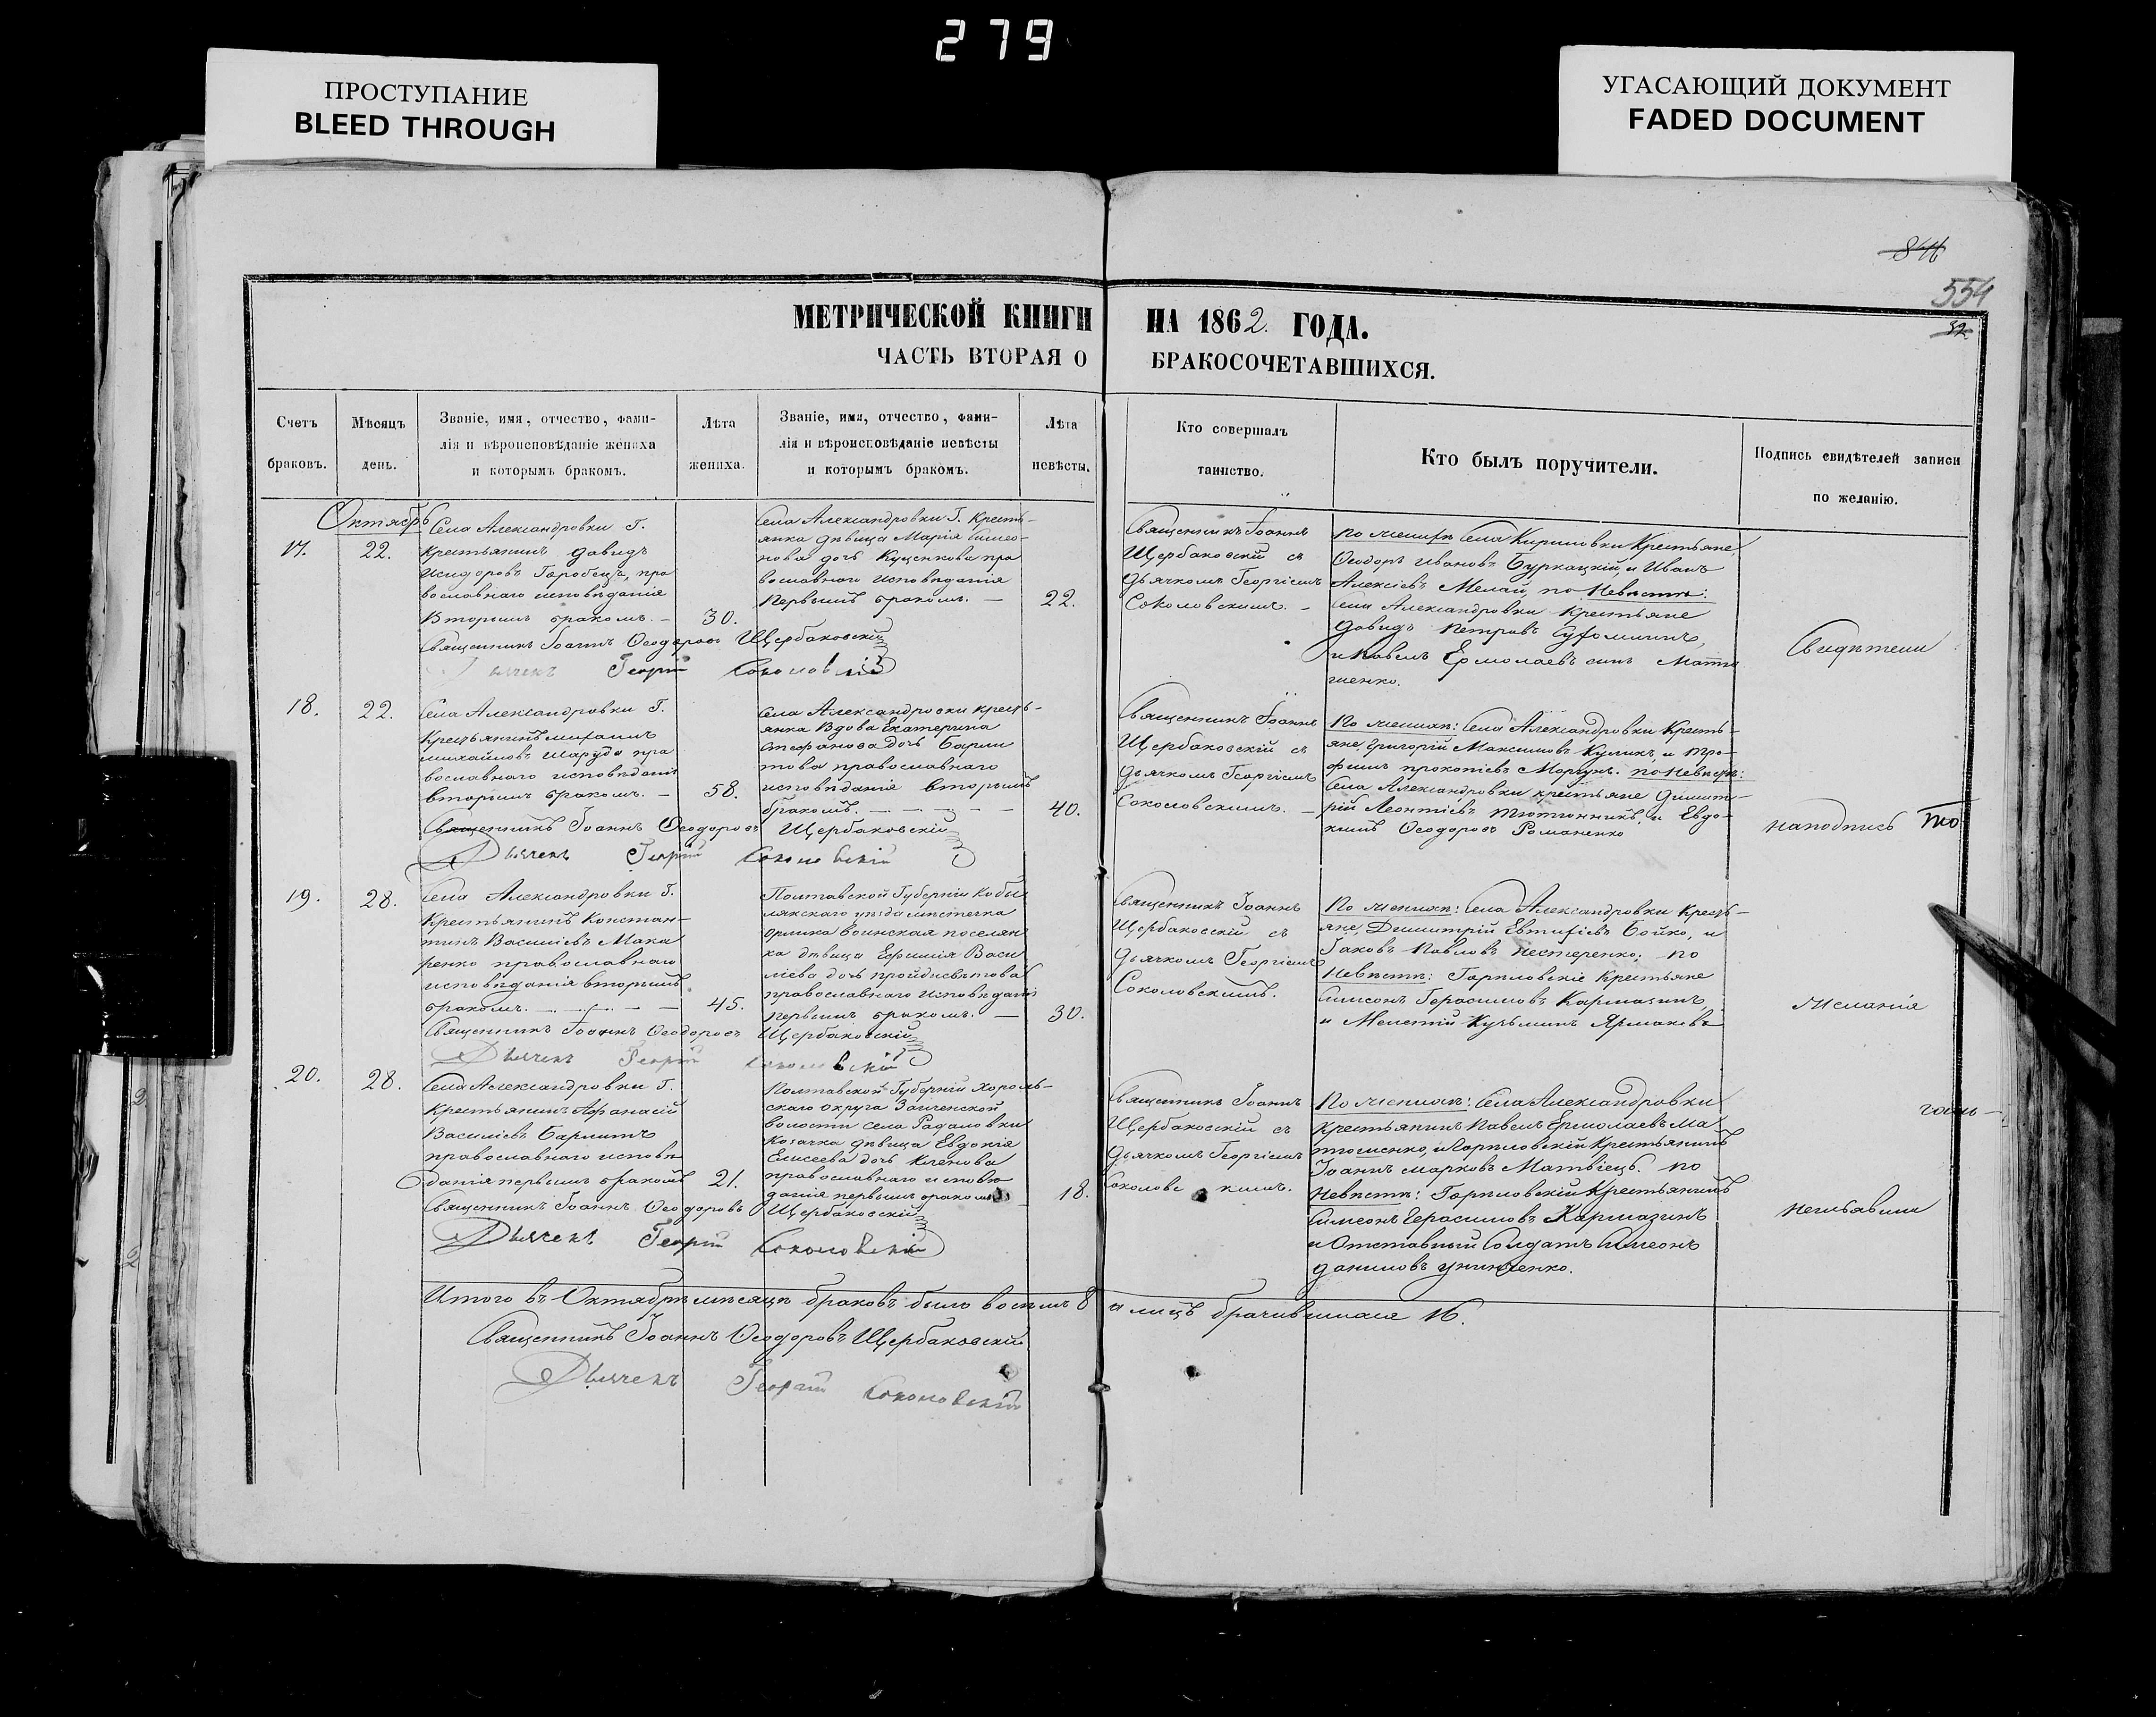 279
ПРОСТУПАНИЕ
BLEED THROUGH
УГАСАЮЩИЙ ДОКУМЕНТ
FADED DOCUMENT
554
32
МЕТРИЧЕСКОЙ КНИГИ НА 1862. ГОДА.
ЧАСТЬ ВТОРАЯ О БРАКОСОЧЕТАВШИХСЯ.
Счетъ
браковъ.
Мѣсяцъ
день.
Званіе, имя, отчество, фами-
лія и вѣроисповѣданіе жениха
и которымъ бракомъ.
Лѣта
жениха.
Званіе, имя, отчество, фами-
лія и вѣроисповѣданіе невѣсты
и которымъ бракомъ.
Лѣта
невѣсты.
Кто совершалъ
таинство.
Кто былъ поручители.
Подпись свидѣтелей записи
по желанію.
Октябрь
17.
22.
Села Александровки Г.
крестьянинъ Давидъ
Исидоровъ Горобецъ, пра
вославнаго исповѣданія
Вторымъ бракомъ. –
30.
Села Александровки Г. кресть-
янка дѣвица Марія Симео-
нова дочь Куценкова пра
вославнаго исповѣданія
первымъ бракомъ. –
22.
Священникъ Іоаннъ
Щербаковскій съ
дьячкомъ Георгіемъ
Соколовскимъ. –
По женихѣ Села Кириловки Крестьяне,
Ѳеодоръ Ивановъ Буркацкій, и Иванъ
Алексіевъ Мелай, по Невѣстѣ:
Села Александровки Крестьяне
Давидъ Петровъ
и Павелъ Ермолаевъ сынъ Матю
шенко.
Свидѣтели
Священникъ Іоаннъ Ѳеодоровъ Щербаковскій
Дьячекъ Георгій Соколовскій
18.
22.
Села Александровки Г.
Крестьянинъ Михаилъ
Михайловъ Шаруда пра
вославнаго исповѣданія
вторымъ бракомъ. –
58.
Села Александровки кресть-
янка Вдова Екатерина
Стефанова дочь Барли
това православнаго
исповѣданія вторымъ
бракомъ.
40.
Священникъ Іоаннъ
Щербаковскій съ
дьячкомъ Георгіемъ
Соколовскимъ. –
По женихѣ: Села Александровки Кресть-
яне, Григорій Максимовъ Куликъ, и Тро-
фимъ Прокопіевъ Моргунъ. по Невѣстѣ:
Села Александровки крестьяне Димит-
рій Леонтіевъ Тютюнникъ, и Евдо-
кимъ Ѳеодоровъ Романенко
наподпись то
Священникъ Іоаннъ Ѳеодоровъ Щербаковскій
Дьячекъ Георгій Соколовскій
19.
28.
Села Александровки Г.
Крестьянинъ Констан-
тинъ Василіевъ Мака
ренко православнаго
исповѣданія вторымъ
бракомъ.
45.
Полтавской Губерніи Кобы
лякскаго уѣзда мѣстечка
Орлика воинская поселян
ка дѣвица Ефимія Васи
ліева дочь
православнаго исповѣданія
первымъ бракомъ. –
30.
Священникъ Іоаннъ
Щербаковскій съ
дьячкомъ Георгіемъ
Соколовскимъ.
По женихѣ: Села Александровки Кресть-
яне, Димитрій Евтихіевъ Бойко, и
Іаковъ Павловъ Нестеренко; по
Невѣстѣ: Гориловскіе Крестьяне
Симеонъ Герасимовъ Кармазинъ,
и Мелетій Кузьминъ Ярмаковъ
Желанія
Священникъ Іоаннъ Ѳеодоровъ Щербаковскій
Дьячекъ Георгій Соколовскій
20.
28.
Села Александровки Г.
Крестьянинъ Афанасій
Василіевъ Барлитъ
православнаго исповѣ
данія первымъ бракомъ
21.
Полтавской Губерніи Хороль-
скаго округа
волости села Радаловки
Козачка дѣвица Евдокія
Елисеева дочь Кленова
православнаго исповѣ
данія первымъ бракомъ
18.
Священникъ Іоаннъ
Щербаковскій съ
дьячкомъ Георгіемъ
Соколовскимъ.
По женихѣ: Села Александровки
Крестьянинъ Павелъ Ермолаевъ Ма
тюшенко, и Гориловскій Крестьянинъ
Іоаннъ Марковъ Матвіецъ. по
Невѣстѣ: Гориловскій Крестьянинъ
Симеонъ Герасимовъ Кармазинъ
и Отставный Солдатъ Симеонъ
Даниловъ
неизъявили
Священникъ Іоаннъ Ѳеодоровъ Щербаковскій
Дьячекъ Георгій Соколовскій
Итого въ Октябрѣ мѣсяцѣ браковъ было восемь 8 и лицъ брачившихся 16.
Священникъ Іоаннъ Ѳеодоровъ Щербаковскій
Дьячекъ Георгій Соколовскій